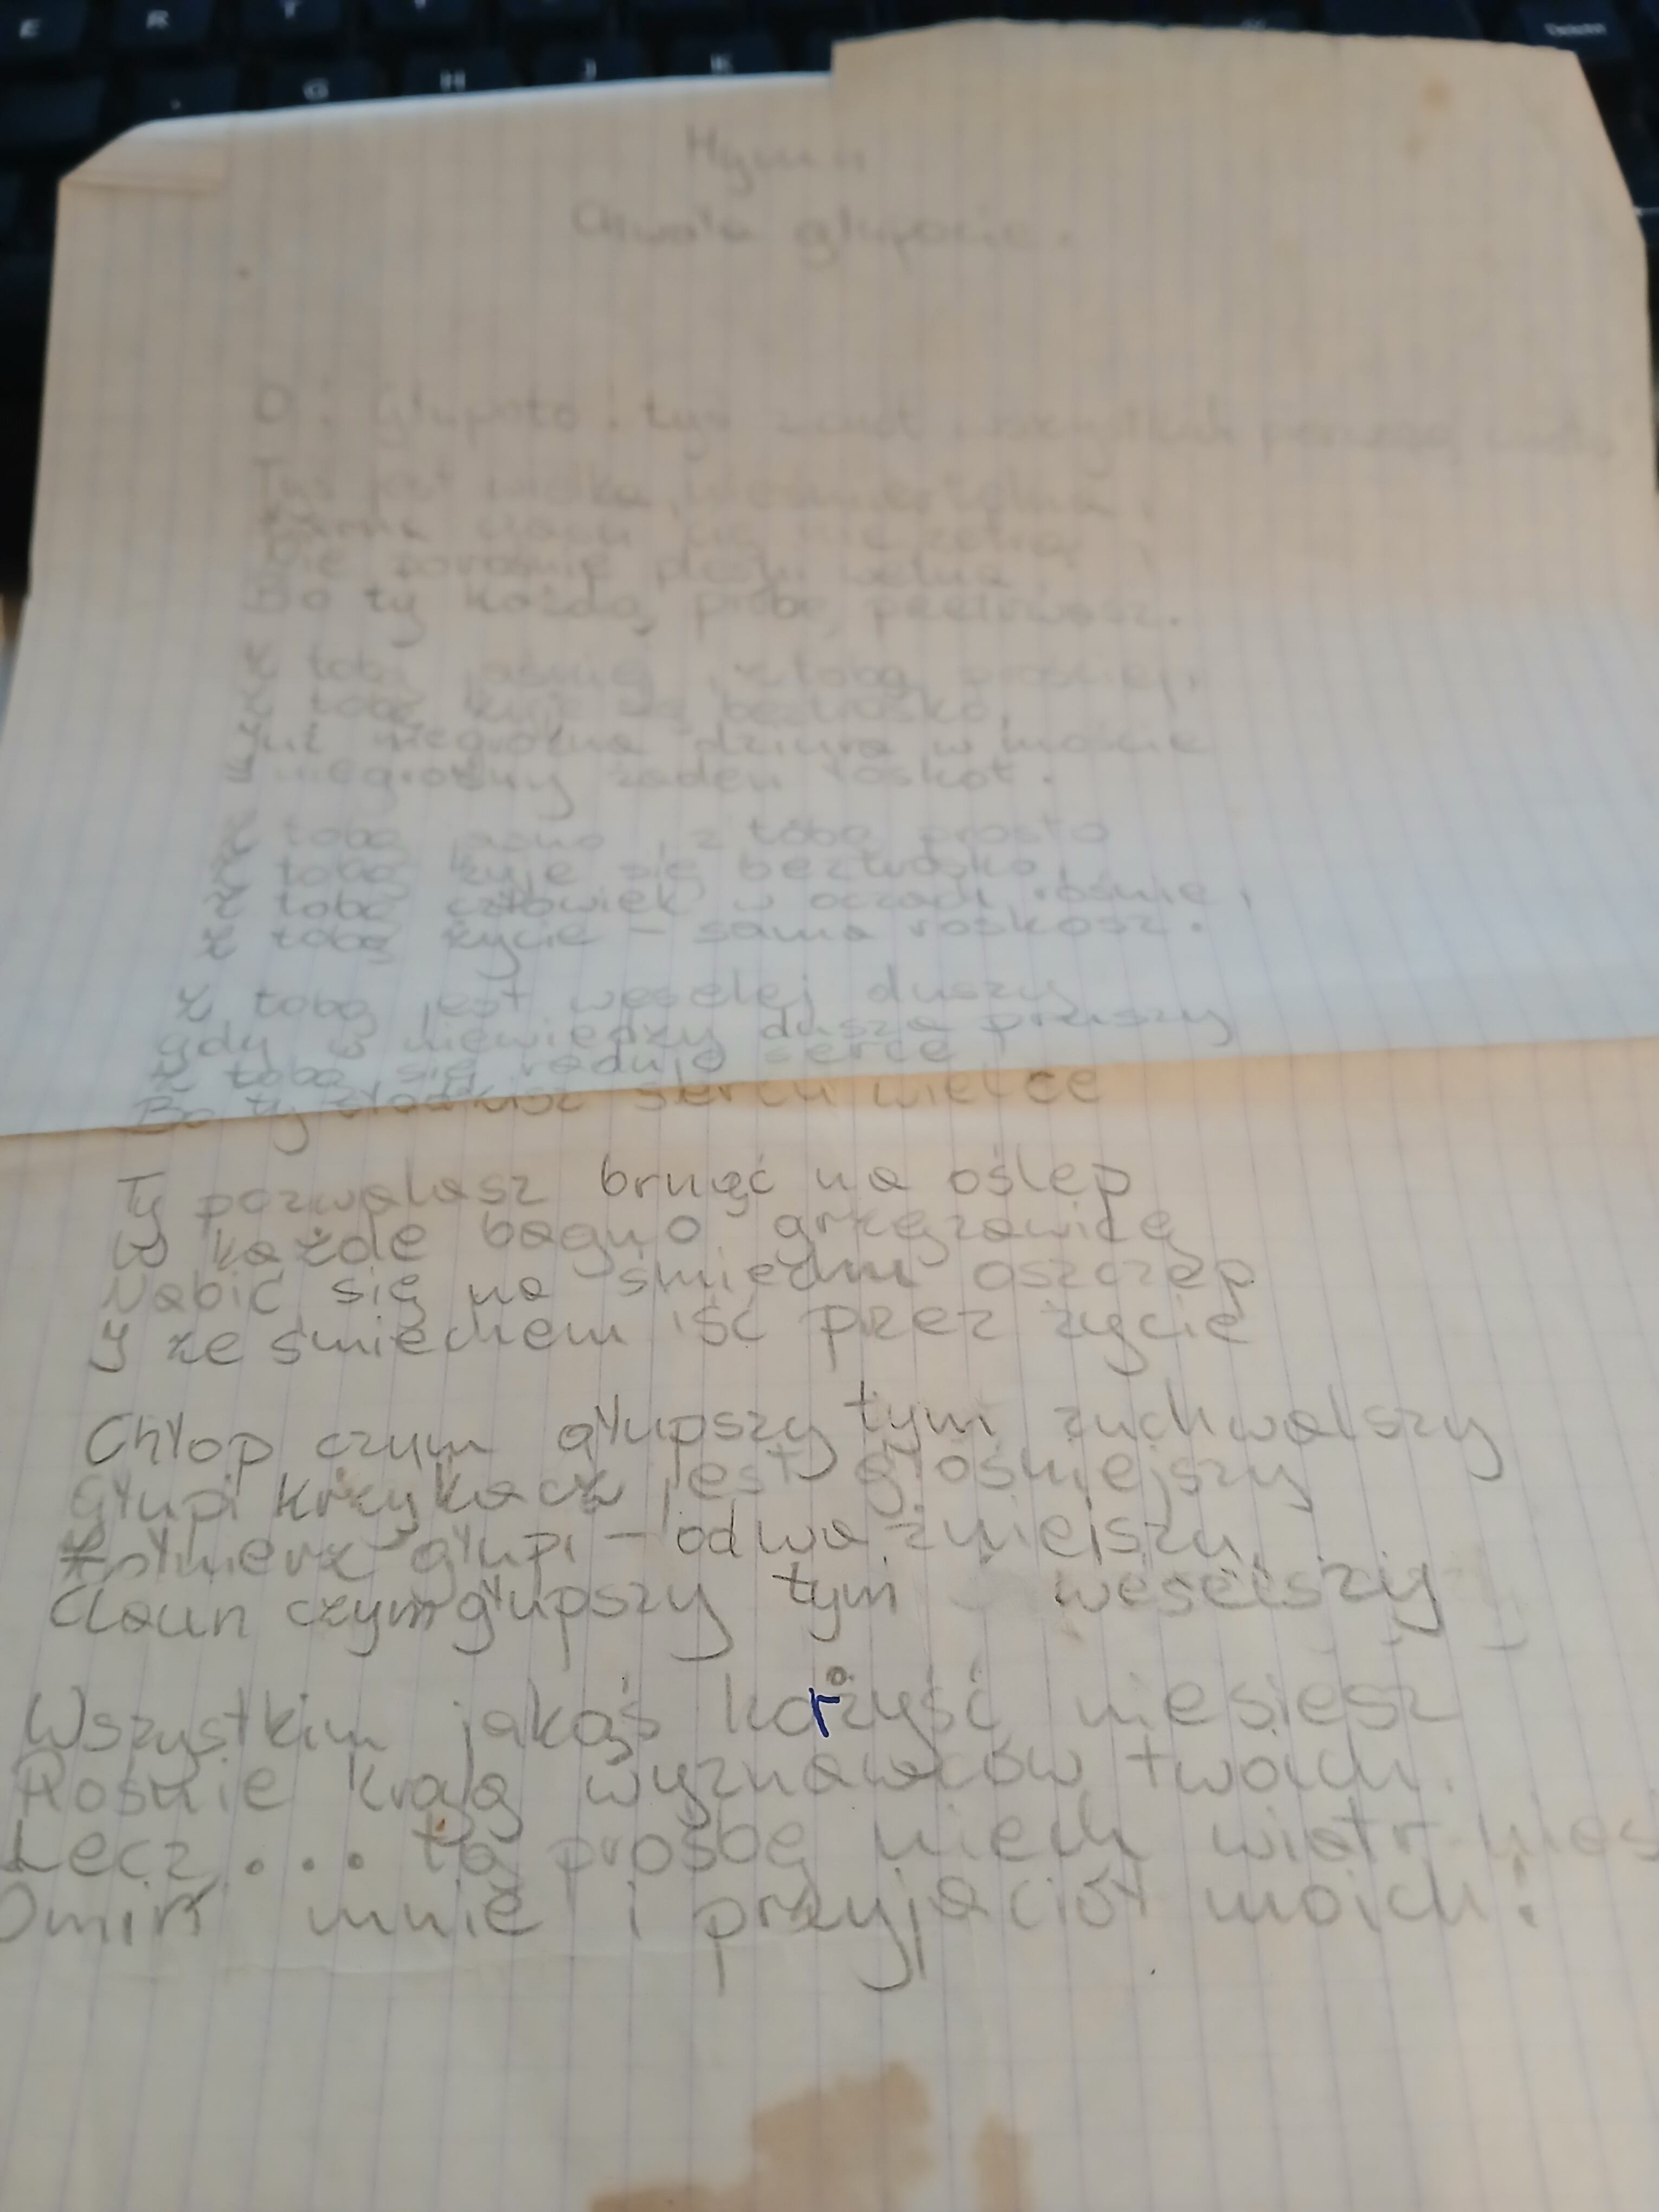 E R T
G H J K
Delete
Hymn
Chwała głupocie.
O! Głupoto! tyś wszystkich
Tyś jest wielka, nieśmiertelna,
czasu cię nie
Nie zarośnie pleśni wełna
Bo ty każdą próbę przetrwasz.
Z tobą jaśniej, z tobą prościej,
Z tobą żyje się beztrosko,
Już niegroźna dziura w moście
niegroźny żaden łoskot.
Z tobą jasno, z tobą prosto
Z tobą żyje się beztrosko,
Z tobą człowiek w oczach rośnie,
Z tobą życie - sama roskosz.
Z tobą jest weselej duszy
gdy w niewiedzy dusza prószy
Z tobą się raduje serce
Bo ty słodzisz sercu wielce
Ty pozwalasz brnąć na oślep
W każde bagno grzęzawicę
Nabić się na śmiechu oszczep
I ze śmiechem iść przez życie
Chłop czym głupszy tym zuchwalszy
Głupi krzykacz jest głośniejszy
Żołnierz głupi - odważniejszy
Claun czym głupszy tym weselszy
Wszystkim jakąś korzyść niesiesz
Rośnie krąg wyznawców twoich.
Lecz... tą prośbę niech wiatr
Omiń mnie i przyjaciół moich!